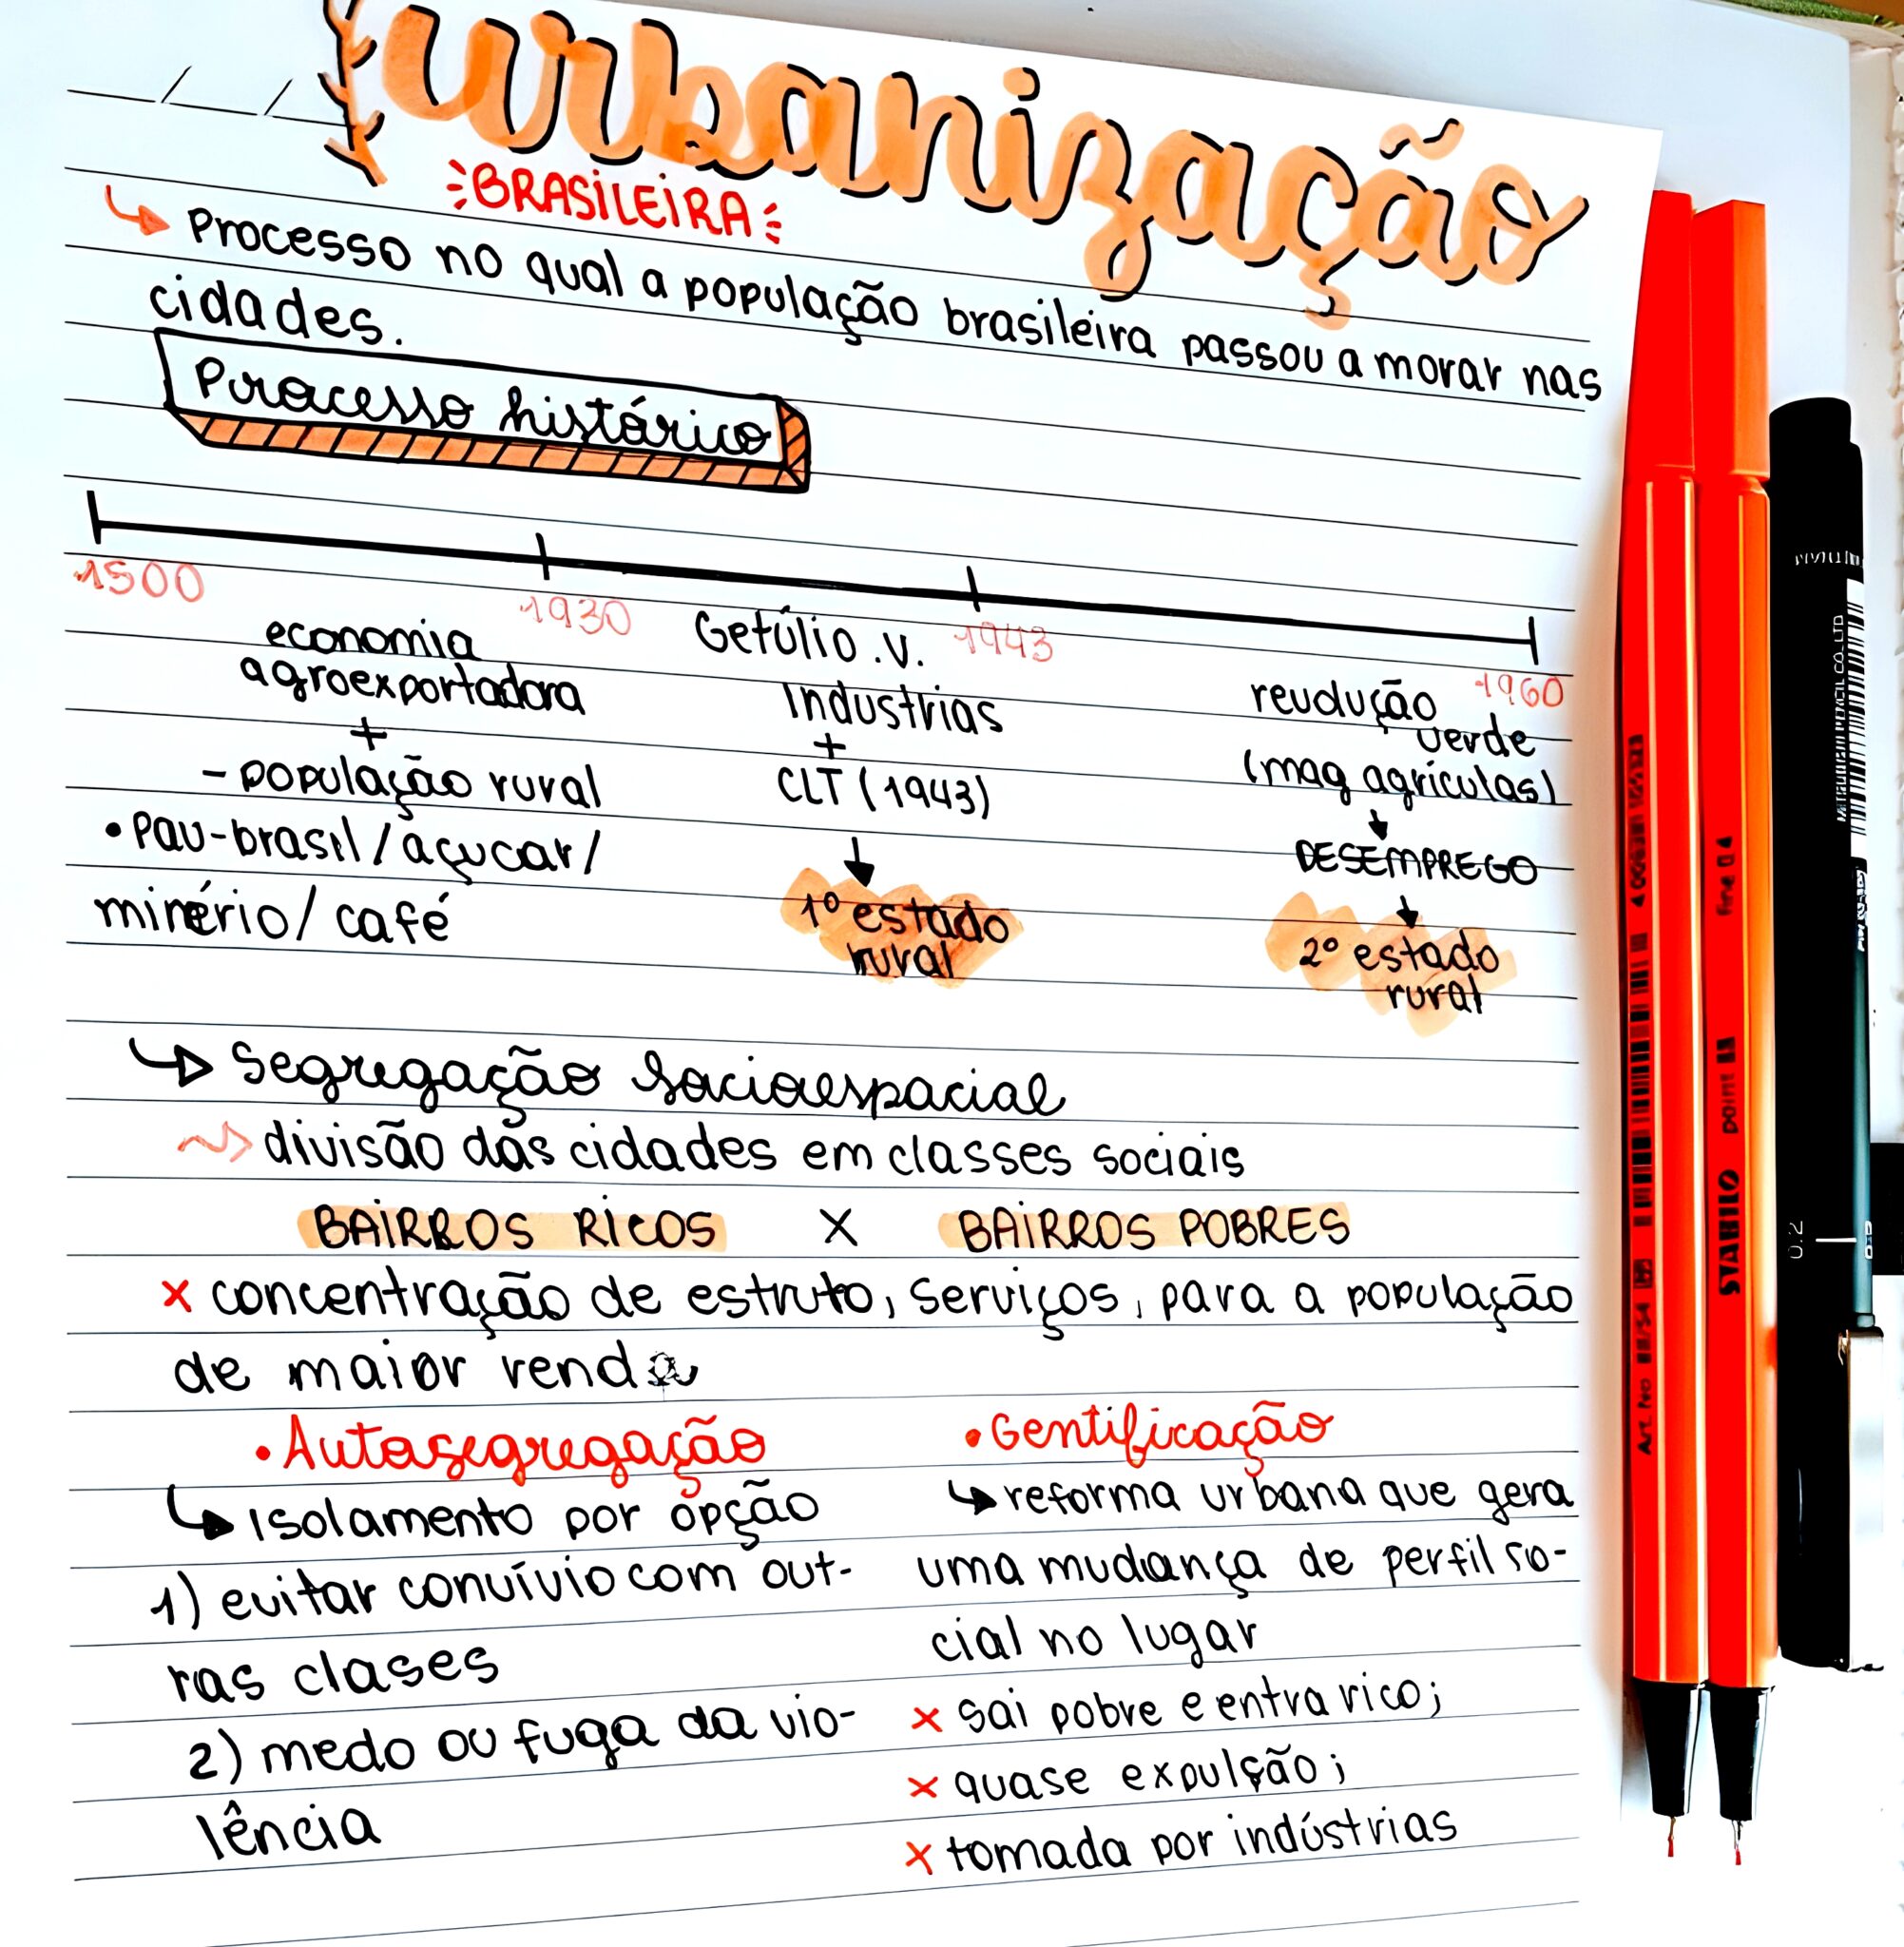 urbanização
BRASILEIRA
Processo no qual a população brasileira passou a morar nas
cidades.
Processo histórico
1500
1930
1943
1960
economia
agroexportadora
+
- população rural
• Pau-brasil / açucar /
minério / café
Getúlio . v.
Industrias
+
CLT (1943)
1º estado
rural
reudução
verde
(mag agrículas)
DESEMPREGO
2º estado
rural
Segregação socioespacial
divisão das cidades em classes sociais
BAIRROS RICOS X BAIRROS POBRES
x concentração de estruto, serviços, para a população
de maior renda
• Autosegregação
isolamento por opção
1) evitar convívio com out-
ras clases
2) medo ou fuga da vio-
lência
• Gentificação
reforma urbana que gera
uma mudança de perfil so-
cial no lugar
x sai pobre e entra rico;
x quase expulção;
x tomada por indústrias
Art. No 88/54
STABILO point 88 fine 0.4
MITSUBISHI PENCIL CO. LTD
0.2